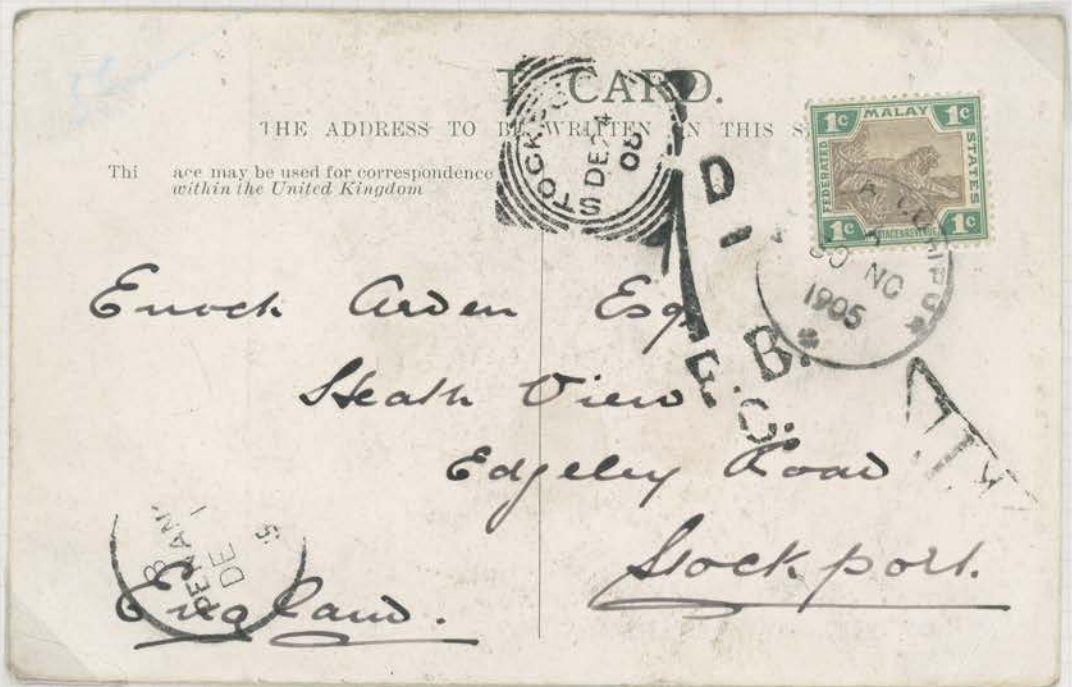 CARD.
THE ADDRESS TO BE WRITTEN IN THIS
Thi ace may be used for correspondence
within the United Kingdom
STOCK
DE 24
05
1c MALAY 1c
FEDERATED STATES
1c POSTAGE & REVENUE 1c
30 NO
1905
D
B.
Enoch Arden Esq
Heath View
Edgeley Road
Stockport.
England.
PENANG
DE 1